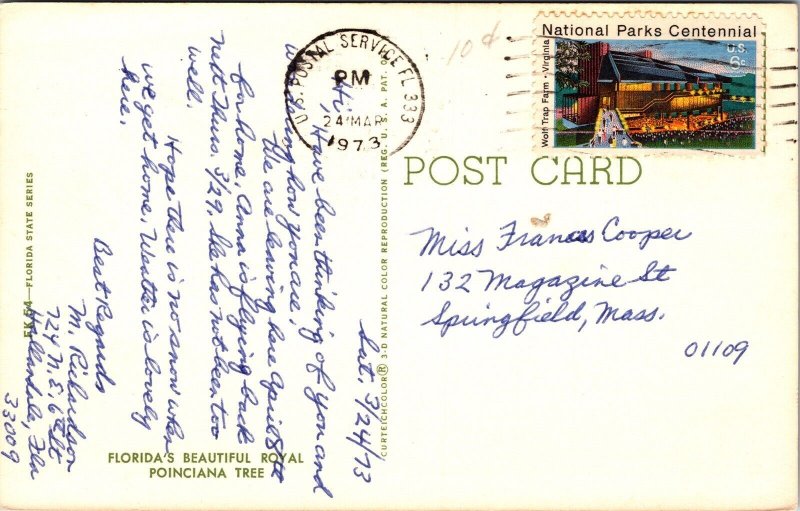 Sat. 3/24/73
Hi, Have been thinking of you and
wondering how you are.
We are leaving here April 8th
for home. Anna is flying back
next Thurs. 3/29. She has not been too
well.
Hope there is no snow when
we get home. Weather is lovely
here.
Best Regards
M. Richardson
724 N.E. 6th St
Hallandale, Fla
33009
FLORIDA'S BEAUTIFUL ROYAL
POINCIANA TREE
FLORIDA STATE SERIES
CURTEICHCOLOR® 3-D NATURAL COLOR REPRODUCTION (REG. U.S.A. PAT.
U.S. POSTAL SERVICE FL 333
PM
24 MAR
1973
10¢
National Parks Centennial
U.S.
6c
Wolf Trap Farm - Virginia
POST CARD
Miss Frances Cooper
132 Magazine St
Springfield, Mass.
01109